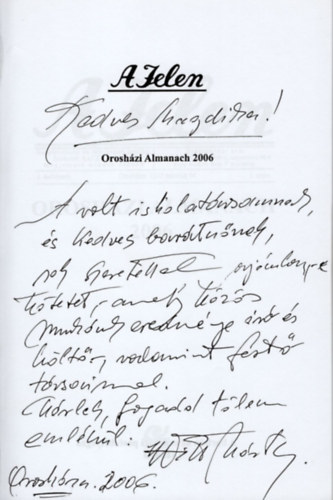 A Jelen
Kedves Magdika!
Orosházi Almanach 2006
A volt iskolatársamnak,
és kedves barátnőnek,
sok szeretettel ajánlom e
kötetet, amely közös
munkánk eredménye író és
költő, valamint festő
társaimmal.
Kérlek, fogadd tőlem
emlékül:
Orosháza. 2006.